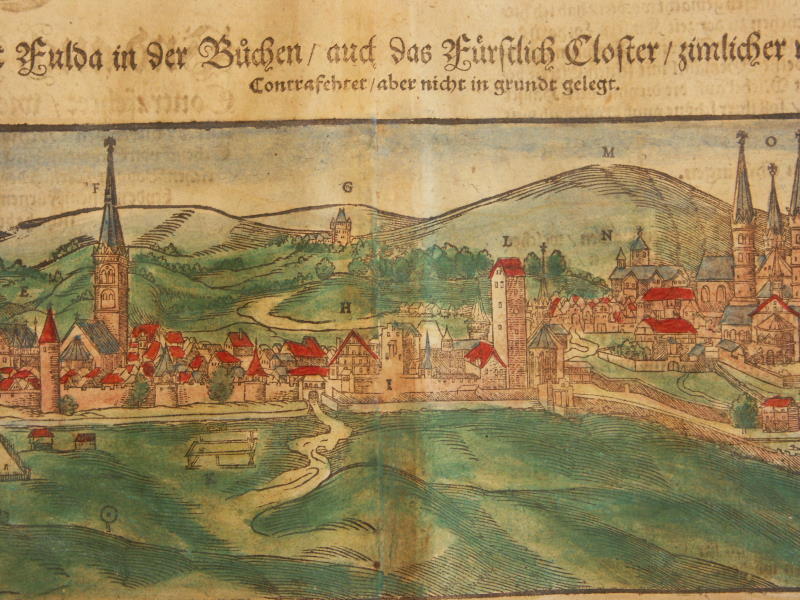 Fulda in der Bůchen / auch das Fürstlich Closter / zimlicher
Contrafehtet / aber nicht in grundt gelegt.
F
G
M
O
E
L
N
H
I
K